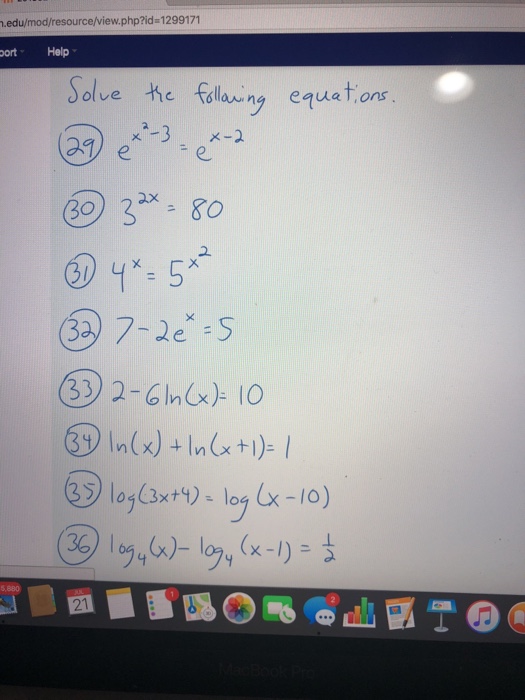 n.edu/mod/resource/view.php?id=1299171
port Help
Solve the following equations.
(29) e^{x^2-3} = e^{x-2}
(30) 3^{2x} = 80
(31) 4^x = 5^{x^2}
(32) 7-2e^x = 5
(33) 2-6ln(x)= 10
(34) ln(x) + ln(x+1)= 1
(35) log(3x+4) = log(x-10)
(36) log_4(x) - log_4(x-1) = 1/2
21
1
2
MacBook Pro